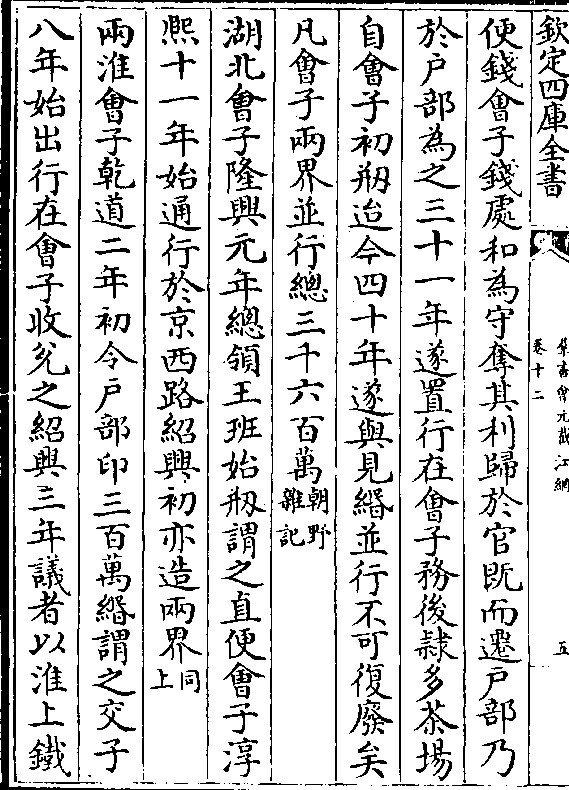 欽定四庫全書
羣書會元截江網
卷十二
五
便錢會子錢處和為守奪其利歸於官既而遷户部乃
於户部為之三十一年遂置行在會子務後隷多茶場
自會子初剙迨今四十年遂與見緡並行不可復廢矣
凡會子兩界並行總三千六百萬朝野雜記
湖北會子隆興元年總領王班始剙謂之直便會子淳
熈十一年始通行於京西路紹興初亦造兩界同上
兩淮會子乾道二年初令户部印三百萬緡謂之交子
八年始出行在會子收兊之紹興三年議者以淮上鐵